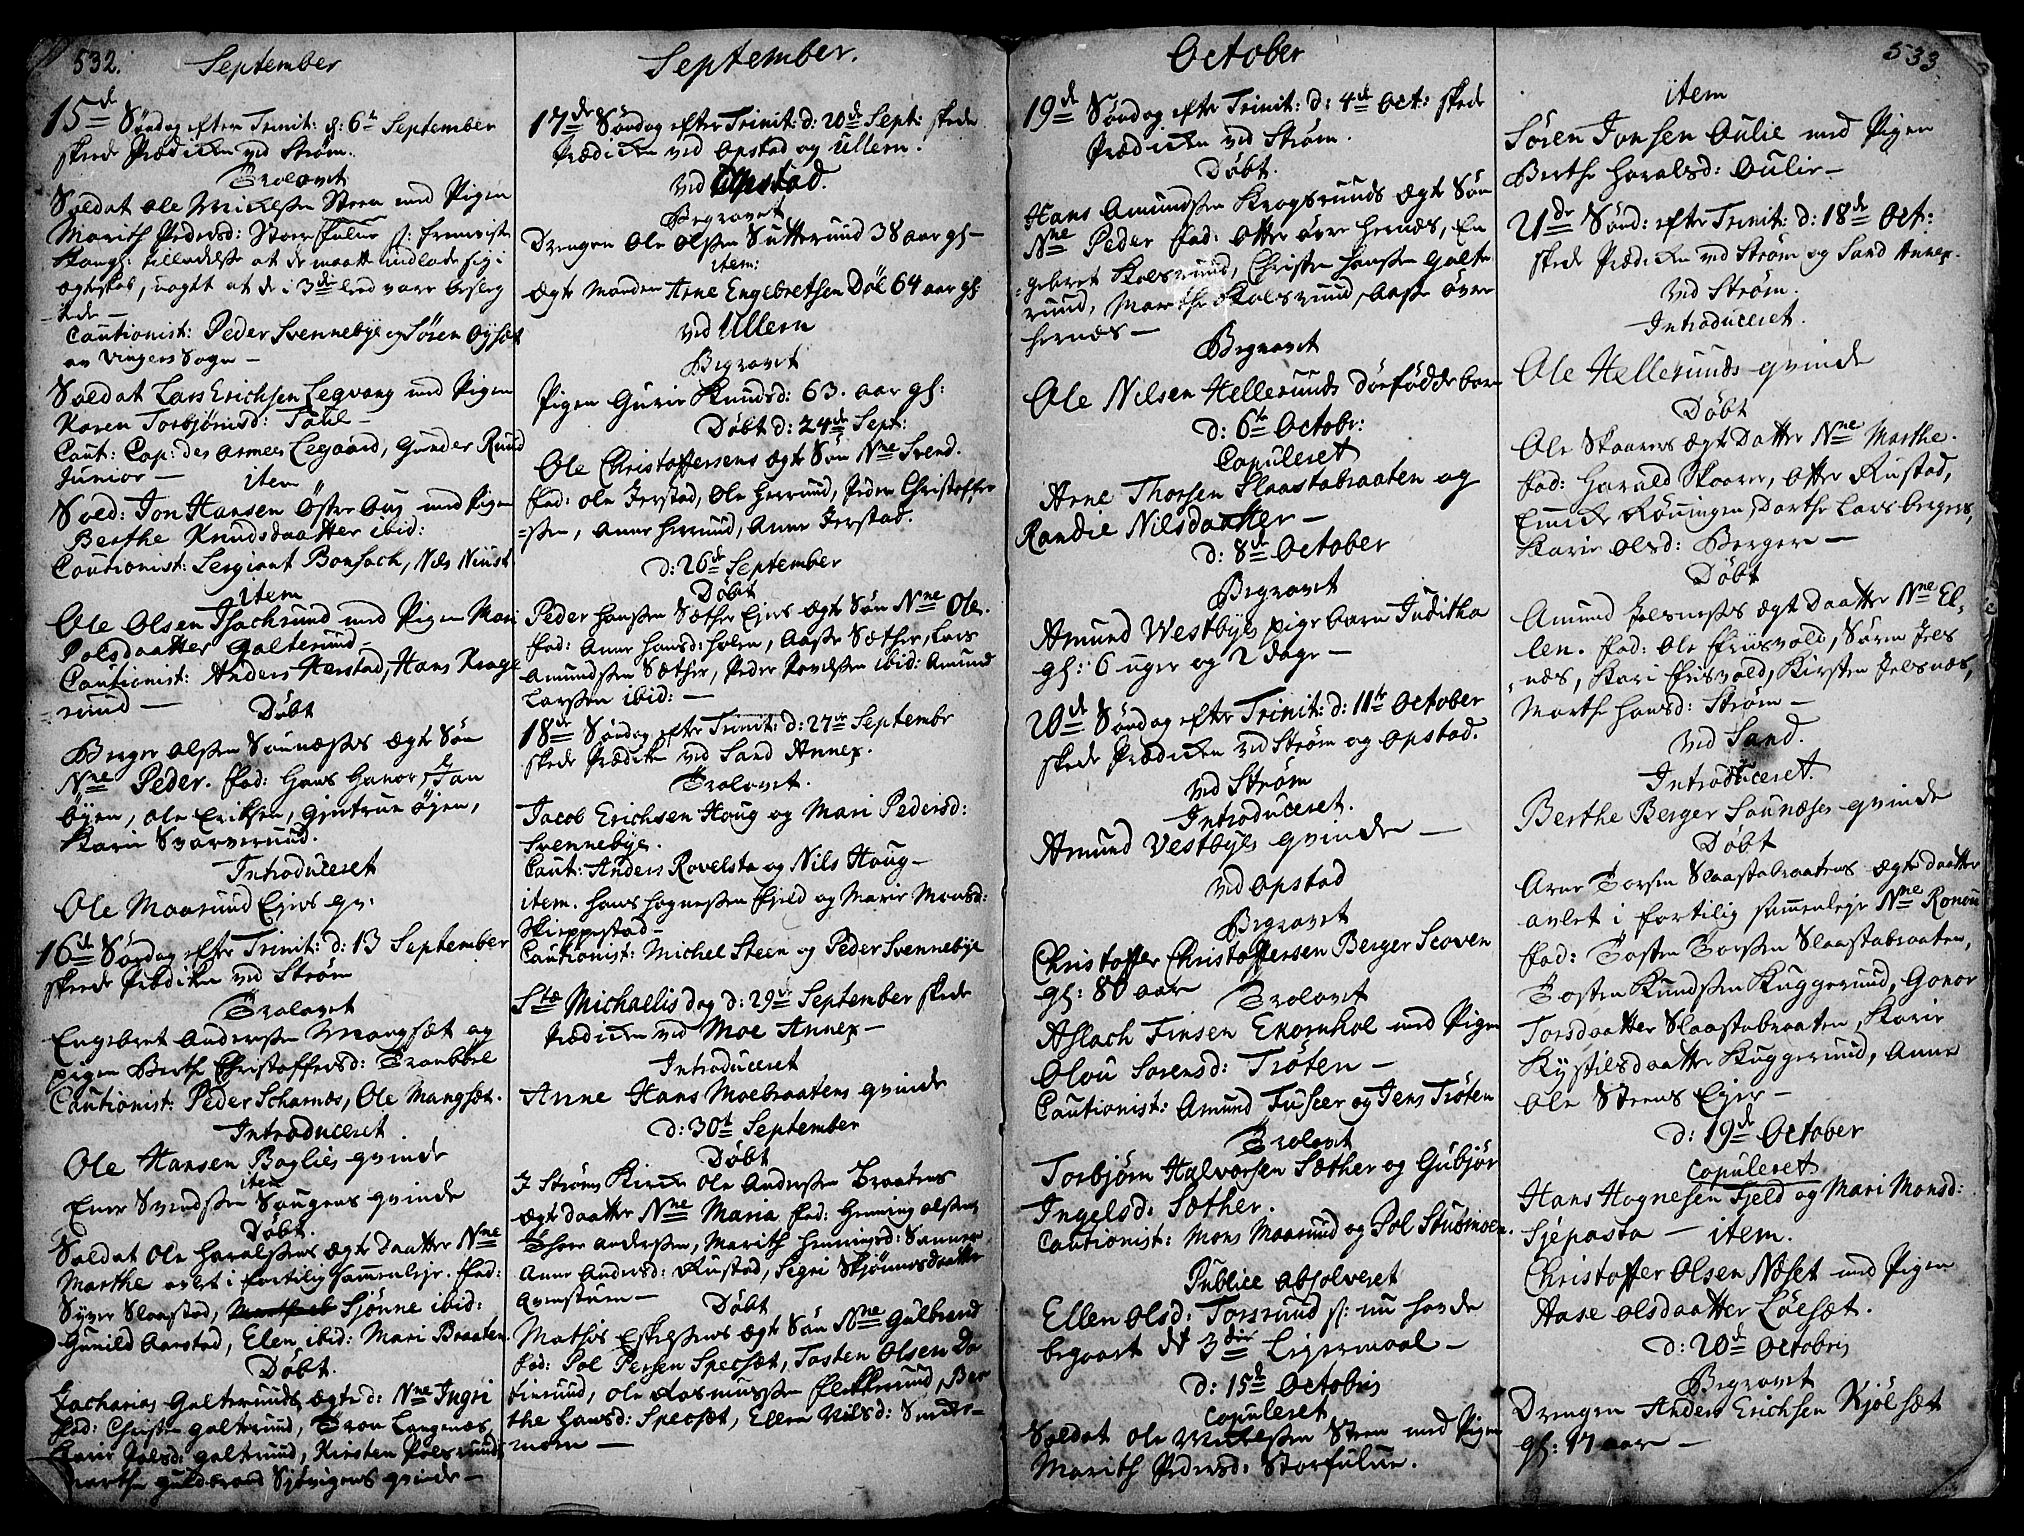 532.
September
15de Søndag efter Trinit: d: 6te September
skede Prædiken ved Strøm.
Trolovet
Soldat Ole Mickelssen Steen med Pigen
Marith Pedersd: Storefulue
Kongl: tilladelsse at de maatte indlade sig i
ægteskab, uagtet at de i 3die leed vare besleg
-tede
Cautionist: Peder Svennebye og Søren Oysæt
av Vingers Sogn
Soldat Lars Erichsen Legvang med Pigen
Karen Torbjørnsd:
Caut: Cap: des Armes Legaard, Gunder Ruud
Junior
item
Sold: Jon Hansen Østre Aug med Pigen
Berthe Knudsdaatter ibid:
Cautionist: Sergiant Bonsach, Nils Niust
item
Ole Olsen Isachrud med Pigen Mari
Polsdaatter Galterud
Cautionist: Anders Harstad, Hans Krogs
-ruud
Døbt
Berger Olssen Saunæsses ægte Søn
Nne Peder. fad: Hans Hanor, Jan
Øyen, Ole Eriksen, Gjertrue Øyen,
Kari Svarverud.
Introduceret
Ole Maarud Eyes qv:
16de Søndag efter Trinit: d: 13 September
skede Prædiken ved Strøm
Trolovet
Engebret Anderssen Mangset og
pigen Berthe Christoffersd: Tranbøel
Cautionist: Peder Scharnæs, Ole Mangset.
Introduceret
Ole Hansen Baglies qvinde
item
Ener Svendssen Saugens qvinde
Døbt.
Soldat Ole Haralssens ægte Daatter Nne
Marthe avlet i fortilig sammenleje. Fad:
Syver Slaastad, Sjønne ibid:
Gunild Aarstad, Elen ibid: Mari Braaten.
Døbt.
Zacharias Galteruuds ægte d: Nne Ingri
fad: Christen Galterud, Tron Langenæs,
Kari Polsd: Galterud, Kirsten Polsruud,
Marthe Guldbrand Sjøvigens qvinde
September.
17de Søndag efter Trinit: d: 20de Sept: skede
Prædiken ved Opstad og Ullern.
ved Opstad.
Begravet
Drengen Ole Olssen Sutterud 38 aar gl
item:
Ægte Manden Arne Engebretsen Døl 64 aar gl:
ved Ullern
Begravet
Pigen Gurie Knudsd: 63. aar gl:
Døbt d: 24de Sept:
Ole Christoffersens ægte Søn Nne Svend.
fad: Ole Jerstad, Ole Herrud, Peder Christoffer
-ssen, Anne Herrud, Anne Jerstad.
d: 26de September
Døbt
Peder Hanssen Sæther Eyes ægte Søn Nne Ole.
fad: Anne Hansd: Holen, Aasse Sæther, Lars
Amundssen Sæther, Peder ibid: Amund
Larssen ibid:
18de Søndag efter Trinit: d: 27de Septembr
skede Prædiken ved Sand Annex.
Trolovet.
Jacob Erichsen Houg og Mari Pedersd:
Svennebye.
Caut: Anders Rovelsta og Nils Houg
item. Hans Hagnessen Fjeld og Marie Monsd:
Skieppestad
Cautionist: Michel Steen og Peder Svennebye
Ste Michaelis dag d: 29de September skede
Prædiken ved Moe Annex
Introduceret
Anne Hans Moebraatens qvinde
d: 30te September
Døbt
I Strøms Kircke Ole Anderssen Braatens
ægte daatter Nne Maria fad: Henning Olssen,
Thore Anderssen, Marith Henningsd: Sanner
Anne Andersd: Rustad, Segri Skjønnesdaatter
Døbt
Mathis Eskelssens ægte Søn Nne Gulbrand
fad: Pol Persen Specset, Tosten Olsen Do
Ole Rasmussen Flekkerud, Ber
the Hansd: Specset, Ellen Nilsd: Sander-
moen
October
19de Søndag efter Trinit: d: 4de Oct: skede
Prædiken ved Strøm.
Døbt.
Hans Amundssen Krogsruuds ægte Søn
Nne Peder fad: Otter øvre Hernæs, En
-gebret Kolsruud, Christen Hanssen Galte
ruud, Marthe Kolsruud, Aasse øvre
Hernæs
Begravet
Ole Nilsen Hellerunds dødfødde barn
d: 6te Octobr:
Copuleret
Arne Thorsen Slaastabraaten og
Randie Nilsdaatter
d: 8de October
Begravet
Amund Westbyes pigebarn Juditha
gl: 6 uger og 2 dage
20de Søndag efter Trinit: d: 11te October
skede Prædiken ved Strøm og Opstad.
ved Strøm
Introduceret.
Amund Vestbyes qvinde
ved Opstad
Begravet
Christoffer Christoffersen Berger Scoven
gl: 80 aar
Trolovet
Aslach Finsen Ekornhol med Pigen
Olou Sorensd: Trøten
Cautionist: Amund Fuscer og Jens Trøten
Trolovet
Torbjørn Halvorsen Sæther og Gubjør
Ingelsd: Sæther.
Cautionist: Mons Maarud og Pol Stubmoen.
Publice absolveret
Ellen Olsd: Torsruud nu havde
begaaet det 3die Leyermaal
d: 15de Octobris
Copuleret
Soldat Ole Mickelssen Steen med Pigen
Marith Pedersd: Storfulue.
533.
item
Søren Jonsen Oulie med Pigen
Berthe Haralsd: Oulie
21de Sønd: efter Trinit: d: 18de Oct:
skede Prædiken ved Strøm og Sand Annex.
ved Strøm.
Introduceret.
Ole Hellerunds qvinde
Døbt
Ole Skaarers ægte Datter Nne Marthe.
fad: Harald Skaarer, Otter Rustad,
Embret Rønningen, Dorthe Lars bergers,
Karie Olsd: Berger
Døbt
Amund Jelsnesses ægte Daatter Nne El-
len. fad: Ole Friisvold, Søren Jels
-næs, Kari Friisvold, Kirsten Jelsnæs,
Marthe Hansd: Strøm
ved Sand.
Introduceret.
Berthe Berger Saunæses qvinde
Døbt
Arne Torsen Slaastabraatens ægte daatter
avlet i fortilig sammenleje Nne Ronou
fad: Tosten Torssen Slaastabraaten,
Tosten Knudssen Kuggerud, Gonor
Torsdaatter Slaastabraaten, Karie
Kystilsdaatter Kuggerud, Anne
Ole Steens Eye
d: 19de October
Copuleret
Hans Hagnesen Fjeld og Mari Monsd:
Sjepasta — item.
Christoffer Olsen Næset med Pigen
Aase Olsdaatter Løeset.
d: 20de Octobris
Begravet
Drengen Anders Erichsen Kjølset
gl: 17 aar